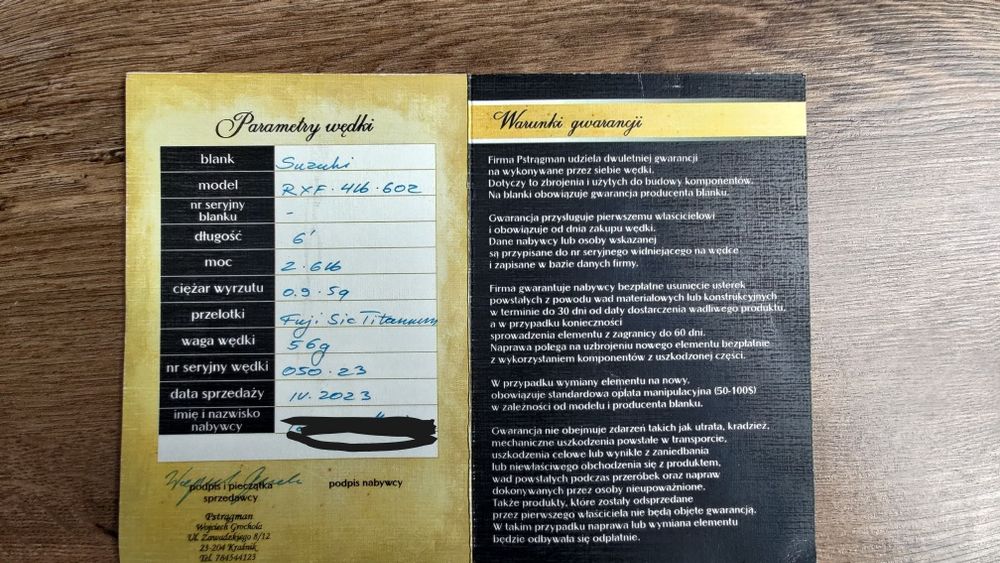 Parametry wędki
blank Suzuki
model RXF. 4lb. 602
nr seryjny blanku -
długość 6'
moc 2. 6lb
ciężar wyrzutu 0.9. 5g
przelotki Fuji Sic Titanium
waga wędki 56g
nr seryjny wędki 050. 23
data sprzedaży IV. 2023
imię i nazwisko nabywcy
podpis i pieczątka sprzedawcy
podpis nabywcy
Pstrągman
Wojciech Grochola
Ul. Zawadzkiego 8/12
23-204 Kraśnik
Tel. 784544123
Warunki gwarancji
Firma Pstrągman udziela dwuletniej gwarancji
na wykonywane przez siebie wędki.
Dotyczy to zbrojenia i użytych do budowy komponentów.
Na blanki obowiązuje gwarancja producenta blanku.
Gwarancja przysługuje pierwszemu właścicielowi
i obowiązuje od dnia zakupu wędki.
Dane nabywcy lub osoby wskazanej
są przypisane do nr seryjnego widniejącego na wędce
i zapisane w bazie danych firmy.
Firma gwarantuje nabywcy bezpłatne usunięcie usterek
powstałych z powodu wad materiałowych lub konstrukcyjnych
w terminie do 30 dni od daty dostarczenia wadliwego produktu,
a w przypadku konieczności
sprowadzenia elementu z zagranicy do 60 dni.
Naprawa polega na uzbrojeniu nowego elementu bezpłatnie
z wykorzystaniem komponentów z uszkodzonej części.
W przypadku wymiany elementu na nowy,
obowiązuje standardowa opłata manipulacyjna (50-100$)
w zależności od modelu i producenta blanku.
Gwarancja nie obejmuje zdarzeń takich jak utrata, kradzież,
mechaniczne uszkodzenia powstałe w transporcie,
uszkodzenia celowe lub wynikłe z zaniedbania
lub niewłaściwego obchodzenia się z produktem,
wad powstałych podczas przeróbek oraz napraw
dokonywanych przez osoby nieupoważnione.
Także produkty, które zostały odsprzedane
przez pierwszego właściciela nie będą objęte gwarancją.
W takim przypadku naprawa lub wymiana elementu
będzie odbywała się odpłatnie.